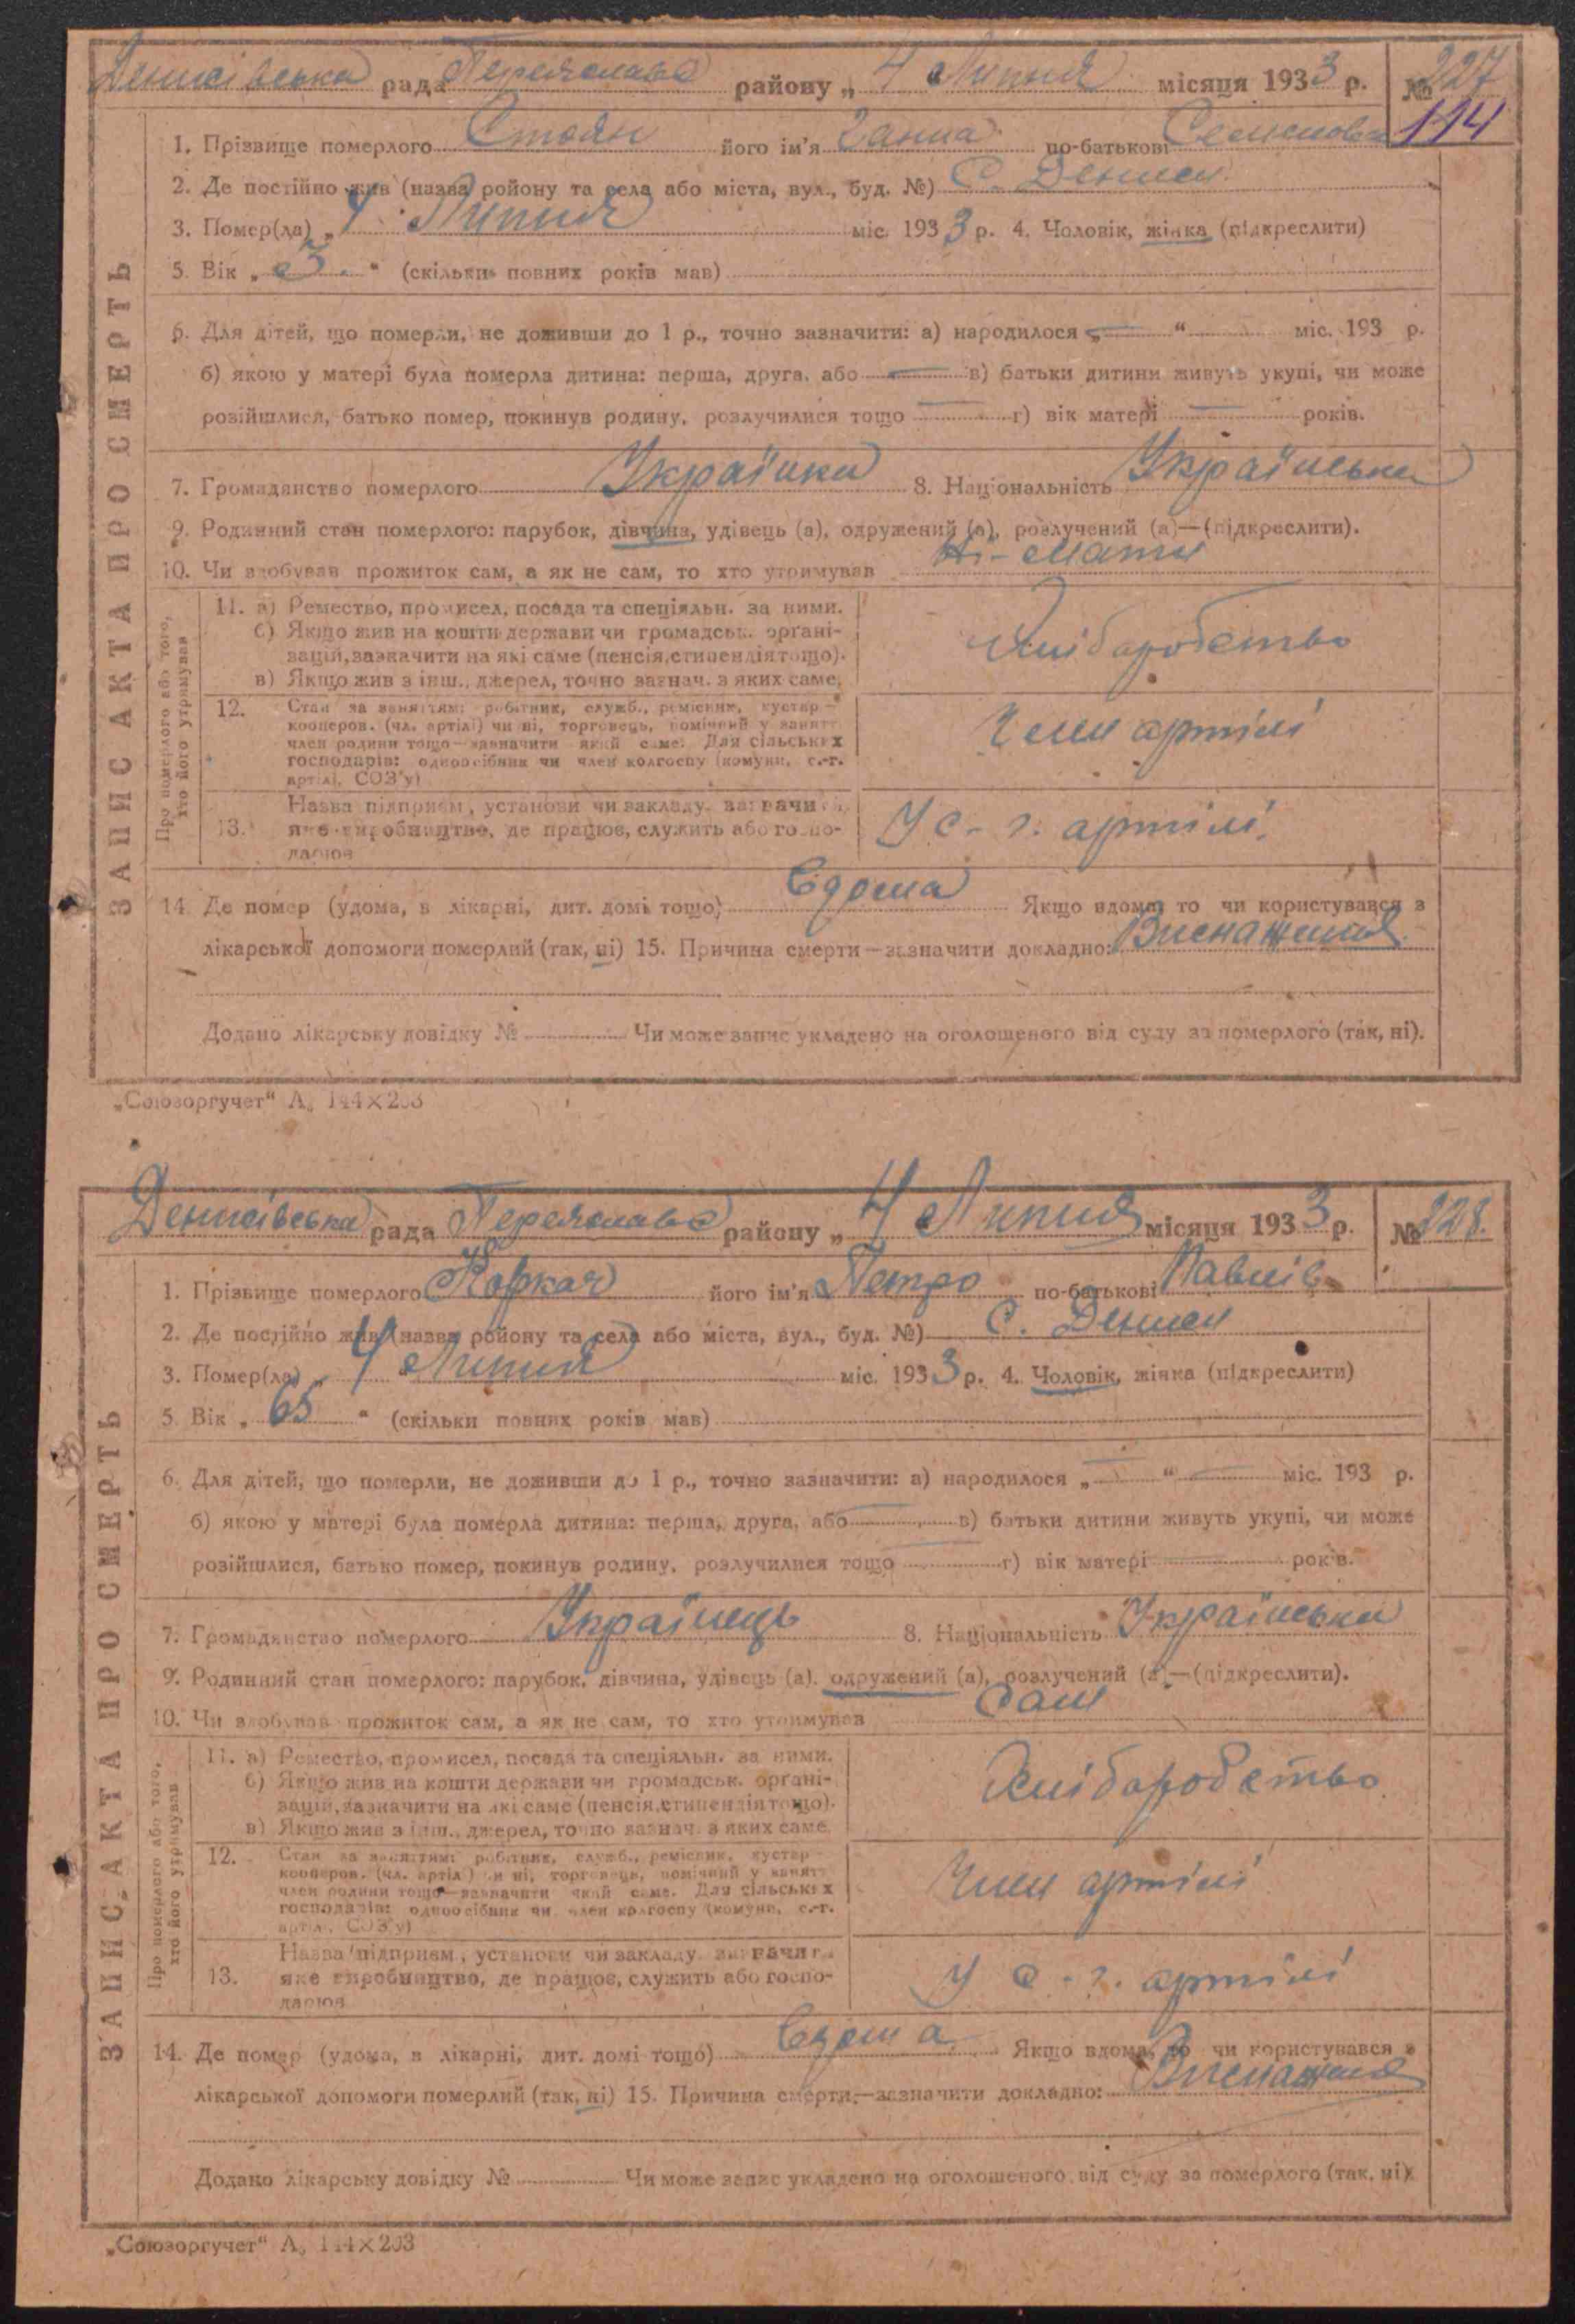 Денисівська рада Переяславс району „ 4 Липня місяця 1933 р. № 227
114
1. Прізвище померлого Стоян його ім'я Ганна по-батькові Семеновна
2. Де постійно жив (назва ройону та села або міста, вул., буд. №) С. Дениси
3. Помер(ла) „ 4 Липня міс. 1933 р. 4. Чоловік, жінка (підкреслити)
5. Вік „ 3. “ (скільки повних років мав)
6. Для дітей, що померли, не доживши до 1 р., точно зазначити: а) народилося „ — “ міс. 193 р.
б) якою у матері була померла дитина: перша, друга, або — в) батьки дитини живуть укупі, чи може
розійшлися, батько помер, покинув родину, розлучилися тощо — г) вік матері — років.
7. Громадянство померлого Українка 8. Національність Українська
9. Родинний стан померлого: парубок, дівчина, удівець (а), одружений (а), розлучений (а)—(підкреслити).
10. Чи здобував прожиток сам, а як не сам, то хто утримував Мати
ЗАПИС АКТА ПРО СМЕРТЬ
Про померлого або того,
хто його утримував
11. а) Ремество, промисел, посада та спеціяльн. за ними.
б) Якщо жив на кошти держави чи громадськ. органі-
зацій, зазначити на які саме (пенсія, стипендія тощо).
в) Якщо жив з інш., джерел, точно зазнач. з яких саме.
Хліборобство
12. Стан за заняттям: робітник, служб., ремісник, кустар—
кооперов. (чл. артілі) чи ні, торговець, помічний у занятт.
член родини тощо—зазначити який саме. Для сільських
господарів: одноосібник чи член колгоспу (комуни, с.-г.
артілі, СОЗ'у)
Член артілі
13. Назва підприєм., установи чи закладу, зазначити,
яке виробництво, де працює, служить або госпо-
дарює
У с-г. артілі.
14. Де помер (удома, в лікарні, дит. домі тощо) Вдома Якщо вдома, то чи користувався з
лікарської допомоги померлий (так, ні) 15. Причина смерти—зазначити докладно: Виснаження
Додано лікарську довідку № Чи може запис укладено на оголошеного від суду за померлого (так, ні).
„Союзоргучет“ А₅ 144×203
Денисівська рада Переяславс району „ 4 Липня місяця 1933 р. № 228.
1. Прізвище померлого Коркач його ім'я Петро по-батькові Павлів
2. Де постійно жив (назва ройону та села або міста, вул., буд. №) С. Дениси
3. Помер(ла) „ 4 Липня міс. 1933 р. 4. Чоловік, жінка (підкреслити)
5. Вік „ 65 “ (скільки повних років мав)
6. Для дітей, що померли, не доживши до 1 р., точно зазначити: а) народилося „ — “ — міс. 193 р.
б) якою у матері була померла дитина: перша, друга, або — в) батьки дитини живуть укупі, чи може
розійшлися, батько помер, покинув родину, розлучилися тощо — г) вік матері — років.
7. Громадянство померлого Українець 8. Національність Українська
9. Родинний стан померлого: парубок, дівчина, удівець (а), одружений (а), розлучений (а)—(підкреслити).
10. Чи здобував прожиток сам, а як не сам, то хто утримував Сам
ЗАПИС АКТА ПРО СМЕРТЬ
Про померлого або того,
хто його утримував
11. а) Ремество, промисел, посада та спеціяльн. за ними.
б) Якщо жив на кошти держави чи громадськ. органі-
зацій, зазначити на які саме (пенсія, стипендія тощо).
в) Якщо жив з інш., джерел, точно зазнач. з яких саме.
Хліборобство
12. Стан за заняттям: робітник, служб., ремісник, кустар—
кооперов. (чл. артілі) чи ні, торговець, помічний у занятт.
член родини тощо—зазначити який саме. Для сільських
господарів: одноосібник чи член колгоспу (комуни, с.-г.
артілі, СОЗ'у)
Член артілі
13. Назва підприєм., установи чи закладу, зазначити,
яке виробництво, де працює, служить або госпо-
дарює
У с-г. артілі
14. Де помер (удома, в лікарні, дит. домі тощо) Вдома Якщо вдома, то чи користувався з
лікарської допомоги померлий (так, ні) 15. Причина смерти—зазначити докладно: Виснаження
Додано лікарську довідку № Чи може запис укладено на оголошеного від суду за померлого (так, ні).
„Союзоргучет“ А₅ 144×203